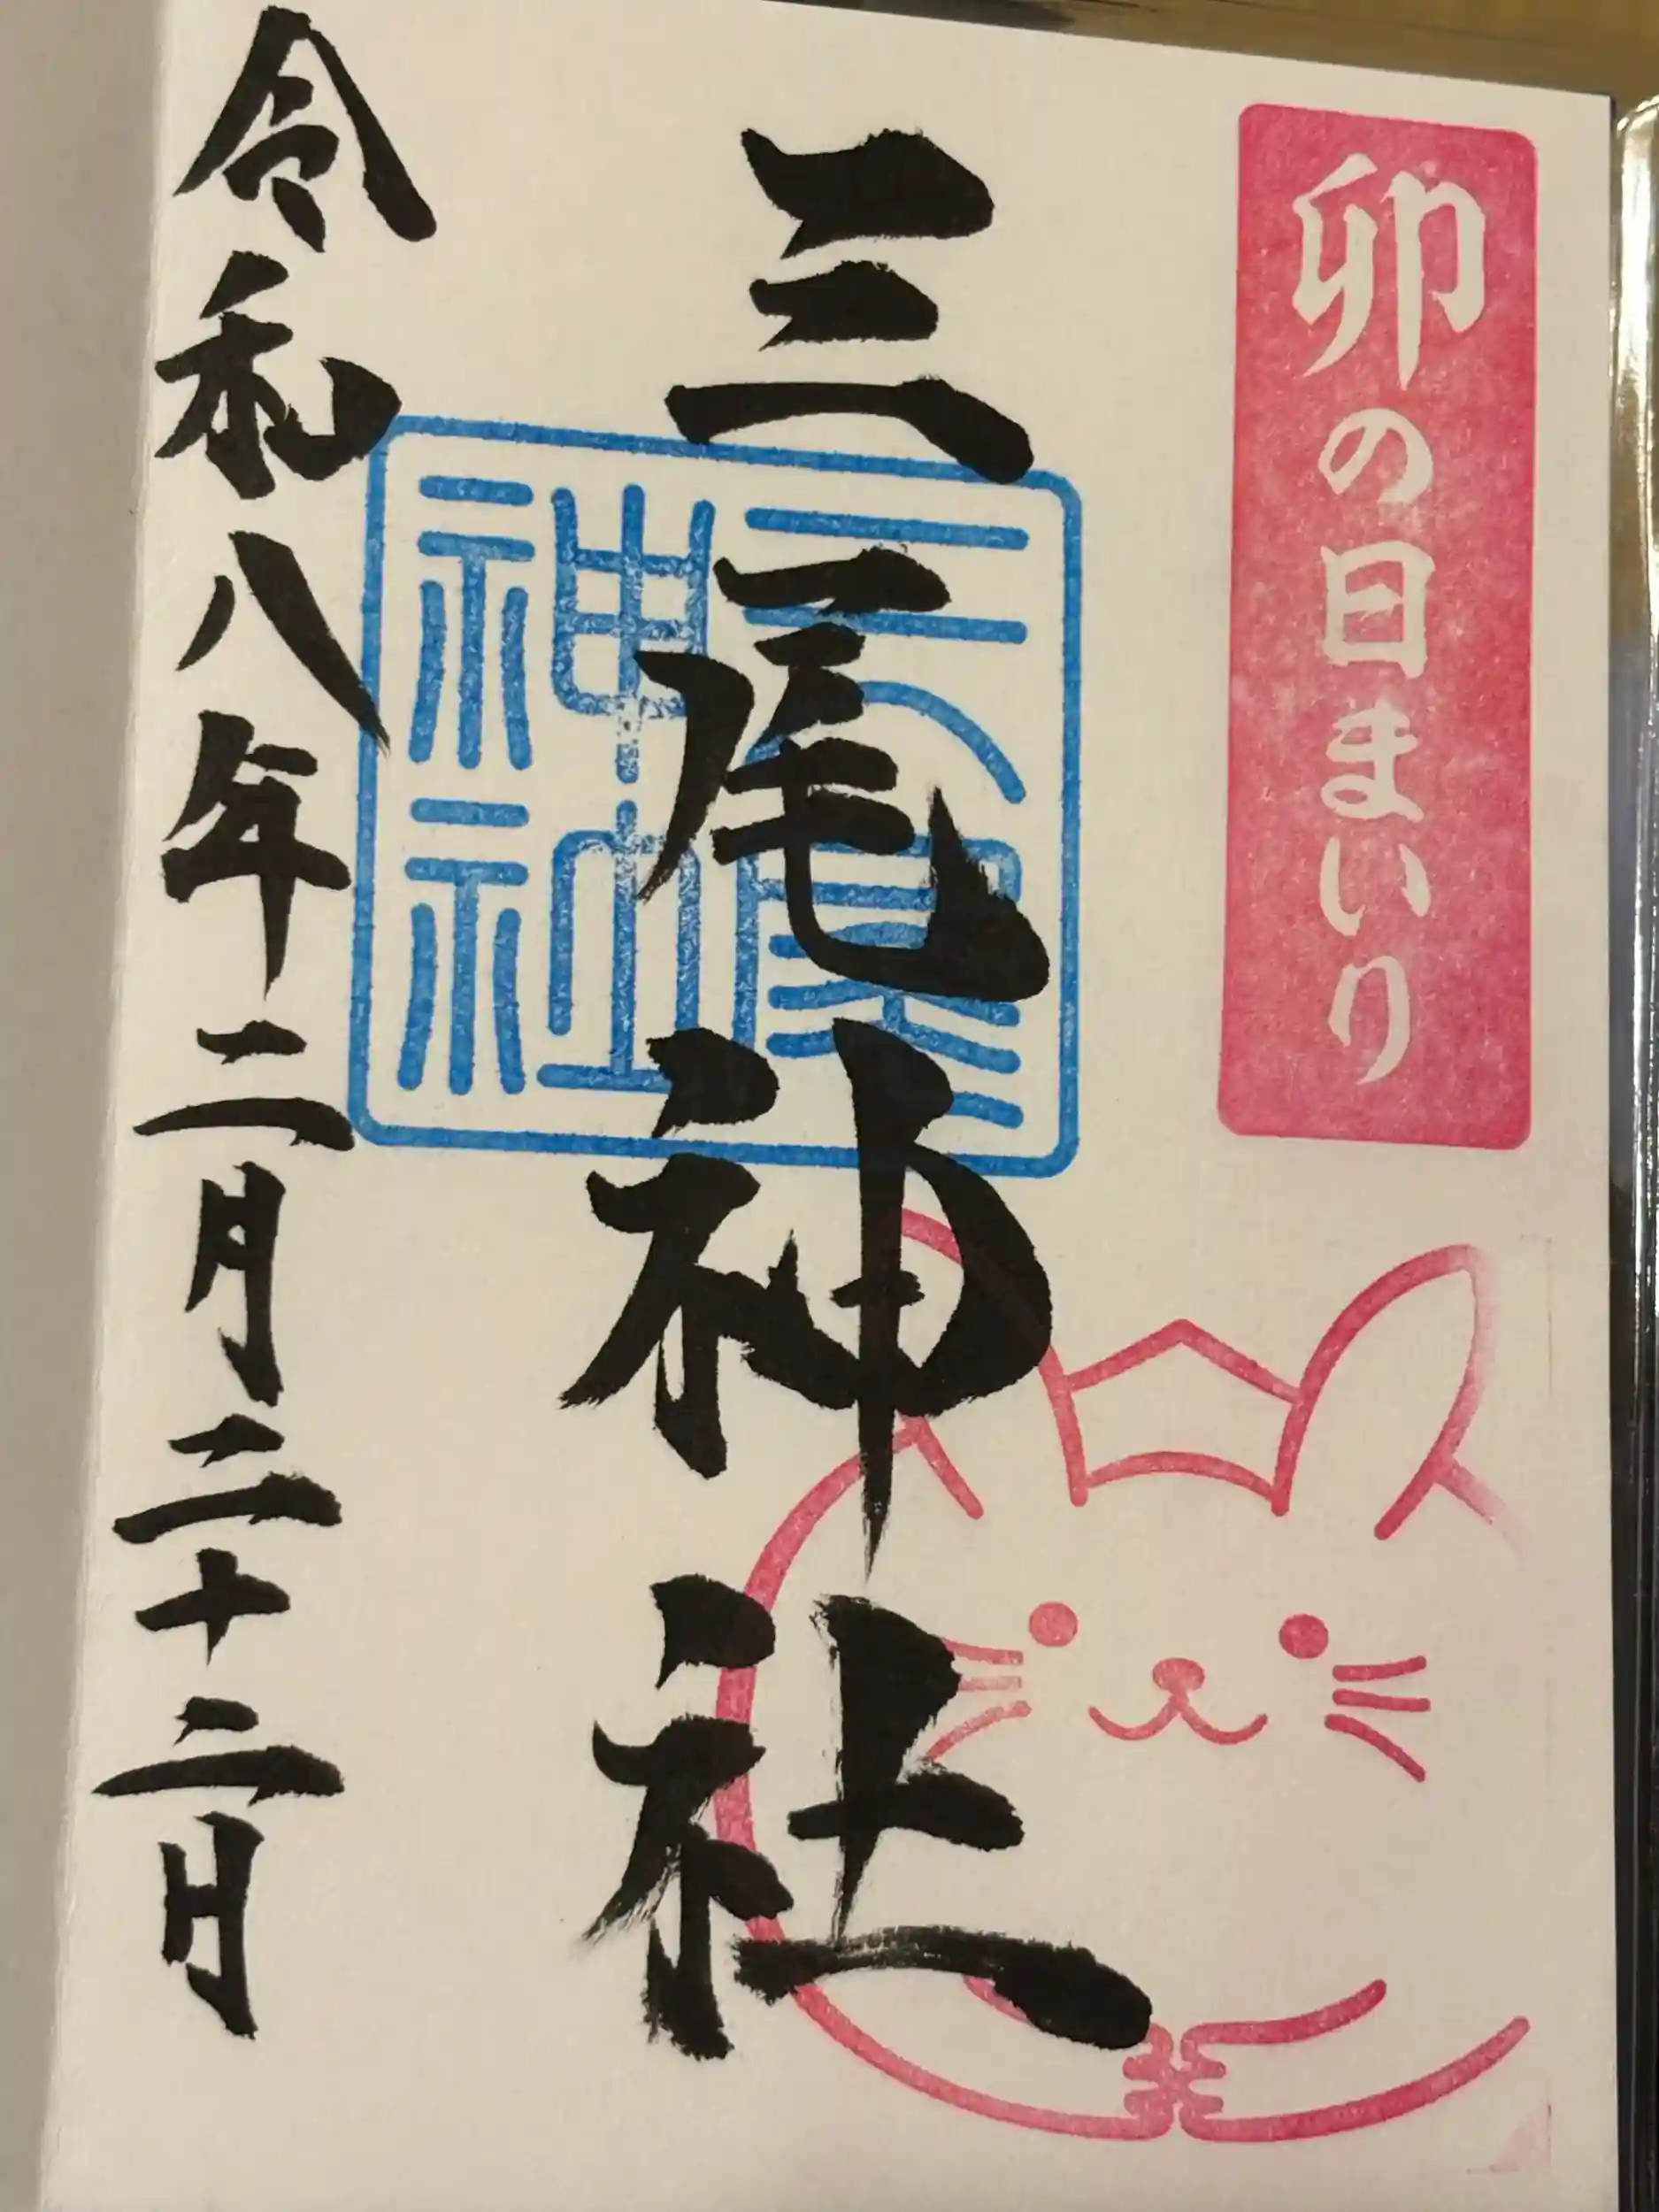 卯の日まいり
三尾神社
三尾神社
令和八年二月二十二日